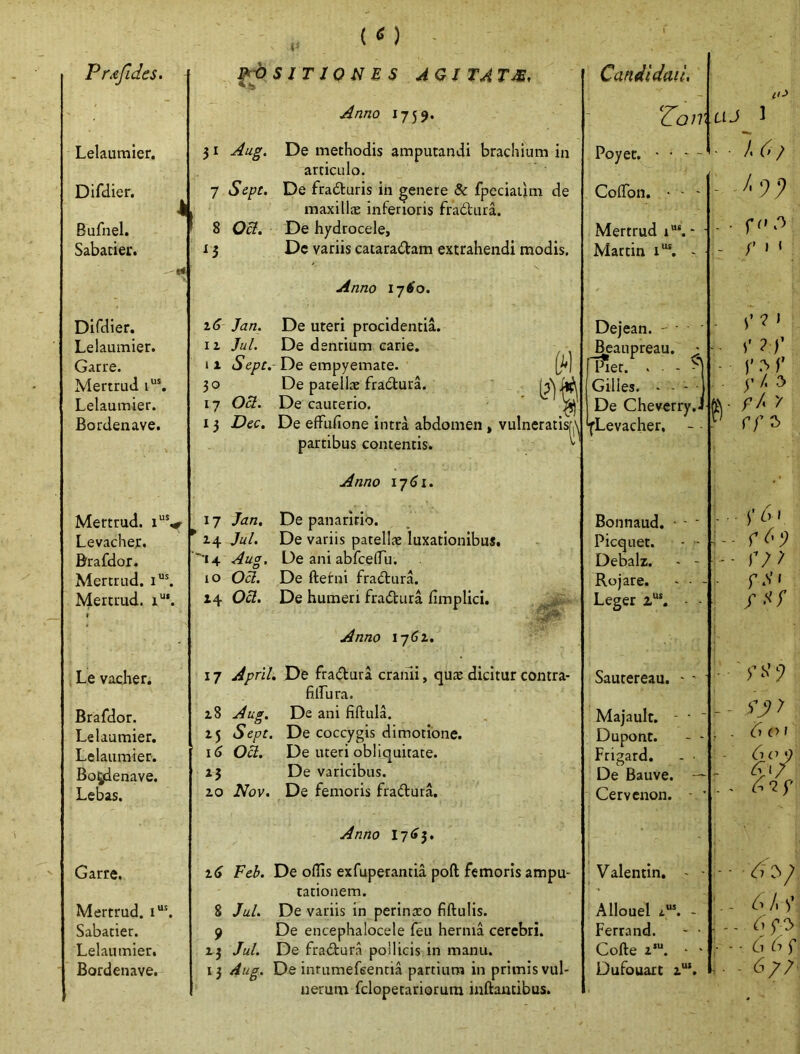 ( 6 )
Præsides. POSITIONES AGITATÆ. Candidati.
Anno 1759. Tomus 1
Lelaumier. 31 Aug. De methodis amputandi brachium in Poyet. 467
articulo.
Difdier. 7 Sept. De fracturis in genere & speciatim de Cosson. 499
maxillæ inferioris fracturâ.
Bufnel. 8 Oct. De hydrocele, Mertrud 1us. 503
Sabatier. 13 De variis cataractam extrahendi modis. Martin 1us. 511
Anno 1760.
Difdier. 26 Jan. De uteri procidentiâ. Dejean. 521
Lelaumier. 12 Jul. De dentium carie. Beaupreau. 525
Garre. 12 Sept. De empyemate. Piet. 535
Mertrud 1us. 30 De patellæ fracturâ. Gilles. 543
Lelaumier. 17 Oct. De cauterio. De Cheverry. 547
Bordenave. 13 Dec. De effusione intrà abdomen, vulneratis Levacher. 553
partibus contentis.
Anno 1761.
Mertrud. 1us. 17 Jan. De panaritio. Bonnaud. 561
Levacher. 24 Jul. De variis patellæ luxationibus. Picquet. 569
Brasdor. 14 Aug. De ani abscessu. Debalz. 577
Mertrud. 1us. 10 Oct. De sterni fracturâ. Rojare. 581
Mertrud. 1us. 24 Oct. De humeri fracturâ simplici. Leger 2us. 585
Anno 1762.
Le vacher. 17 April. De fracturâ cranii, quæ dicitur contra- Sautereau. 589
fissura.
Brasdor. 28 Aug. De ani fistulâ. Majault. 597
Lelaumier. 25 Sept. De coccygis dimotione. Dupont. 601
Lelaumier. 16 Oct. De uteri obliquitate. Frigard. 609
Bordenave. 23 De varicibus. De Bauve. 617
Lebas. 20 Nov. De femoris fracturâ. Cervenon. 625
Anno 1763.
Garre. 26 Feb. De ossis exsuperantiâ post femoris ampu- Valentin. 637
tationem.
Mertrud. 1us. 8 Jul. De variis in perinæo fistulis. Allouel 2us. 645
Sabatier. 9 De encephalocele seu herniâ cerebri. Ferrand. 653
Lelaumier. 23 Jul. De fracturâ pollicis in manu. Coste 2us. 665
Bordenave. 13 Aug. De intumescentiâ partium in primis vul- Dufouart 2us. 677
nerum sclopetariorum instantibus.